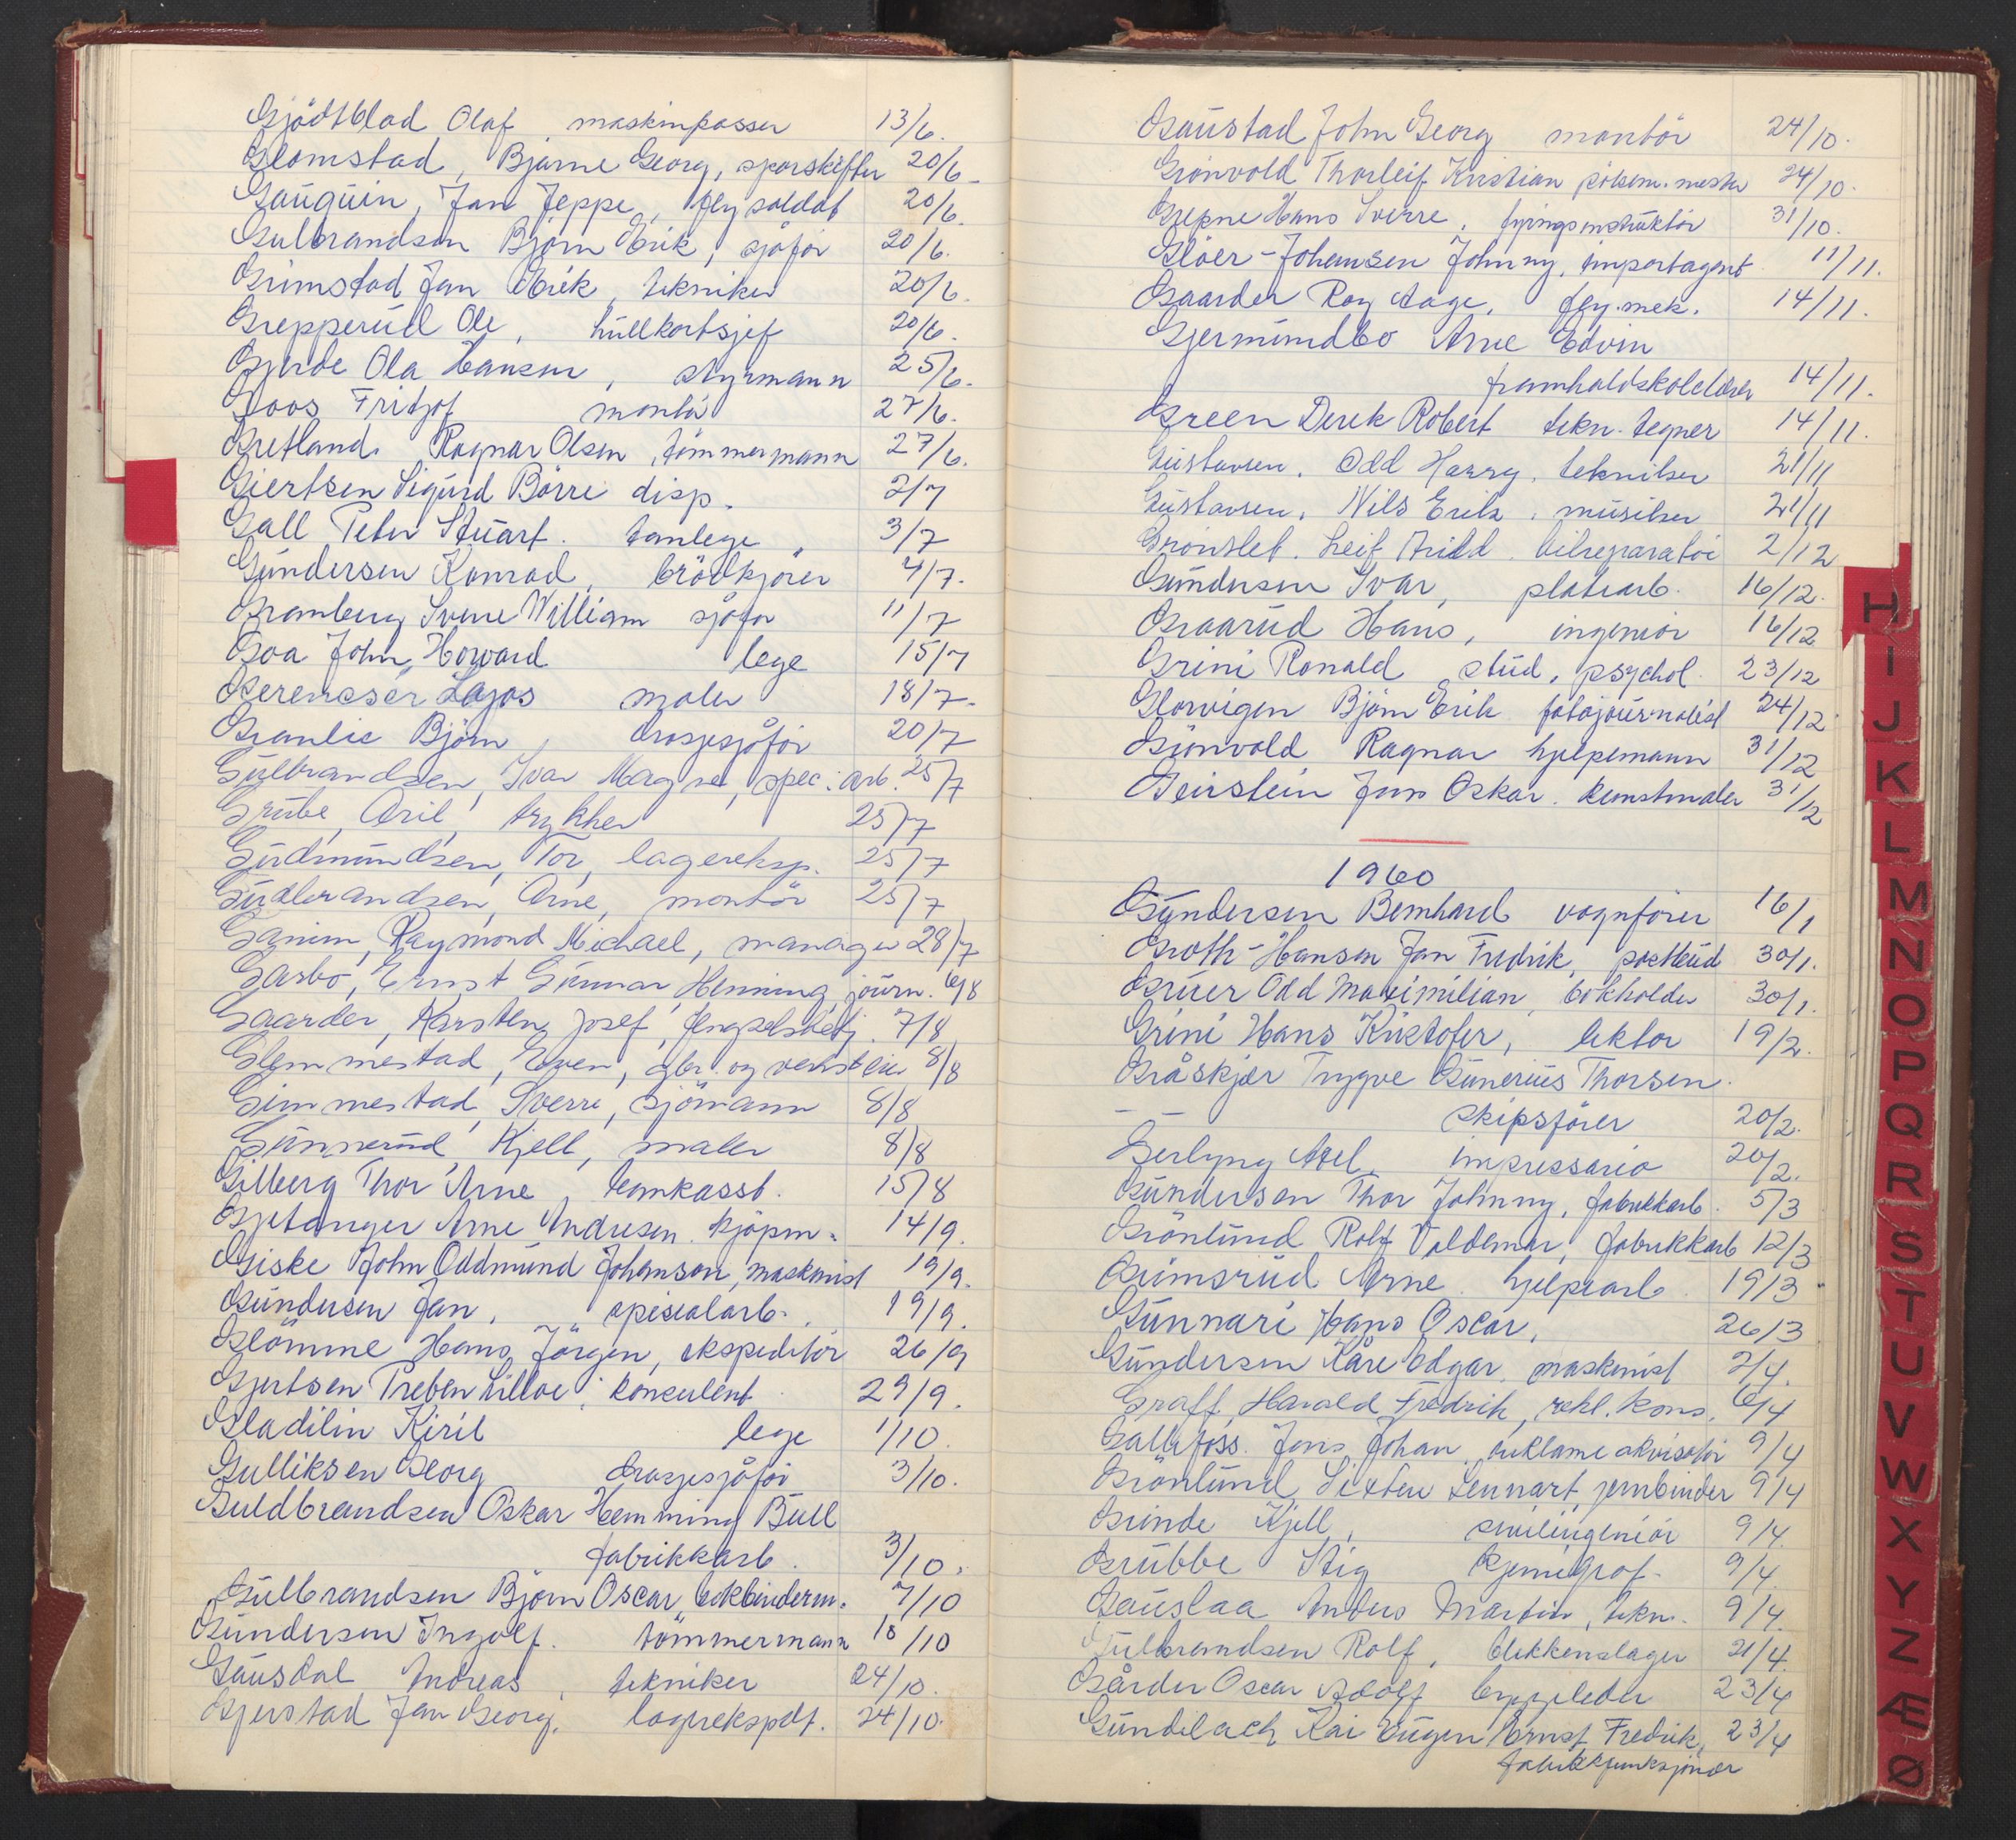 Gjödtblad Olaf, maskinpasser 13/6.
Glomstad, Bjarne Georg, sporskifter 20/6
Gauguin, Jan Jeppe, flysoldat 20/6
Gulbrandsen Bjørn Erik, sjåför 20/6.
Grimstad Jan Erik, tekniker 20/6.
Grepperud Ole, hullkortsjef 20/6.
Gjerde Ola Hansen, styrmann 25/6.
Goos Fritjof montör 27/6.
Gretland Ragnar Olsen, tömmermann 27/6.
Giertsen Sigurd Börre disp. 2/7
Gall Peter Stuart. tannlege 3/7
Gundersen Konrad, brödkjörer 4/7.
Gramberg Svenne William sjåför 11/7
Goa John Howard lege 15/7
Gerencser Lajos maler 18/7.
Granlie Björn, drosjesjåför 20/7
Gulbrandsen, Ivar Magne, spec.arb. 25/7
Grube, Aril, trykker 25/7
Gudmundsen, Tor, lagereksp. 25/7
Gudbrandsen, Arne, montör 25/7
Ganim, Raymond Michael, manager 28/7
Garbo, Ernst Gunnar Henning, journ. 6/8
Gaarder, Karsten Josef, fengselsbetj. 7/8
Glemmestad, Even, gbr. og verksteier 8/8
Gimmestad, Sverre, sjömann 8/8
Gunnerud, Kjell, maler 8/8
Gilberg Thor Arne, bankasst. 15/8
Gjetanger Arne Andresen. kjöpm. 14/9.
Giske John Oddmund Johanson, maskinist 19/9.
Gundersen Jan, spesialarb. 19/9.
Glömme Hans Jörgen, ekspeditör 26/9
Gjertsen Preben Lilloe, konsulent 29/9.
Gladilin Kiril lege 1/10.
Gulliksen Georg drosjesjåför 3/10.
Guldbrandsen Oskar Hemming Bull
fabrikkarb. 3/10.
Gulbrandsen Björn Oscar bokbinderm. 7/10
Gundersen Ingolf. tömmermann 18/10
Gausdal Andreas, tekniker 24/10.
Gjerstad Jan Georg, lagerekspdt. 24/10.
Gaustad John Georg montör 24/10.
Grönvold Thorleif Kristian 24/10.
Grepne Hans Sverre, fyringsinstruktör 31/10.
Glöer-Johansen Johnny, importagent 11/11.
Gaarder Roy Aage, fly.mek. 14/11.
Gjermundbo Arne Edvin
framhaldskolelærer 14/11.
Green Derek Robert tekn. tegner 14/11.
Gustavsen, Odd Harry, tekniker 21/11
Gustavsen, Nils Erik, musiker 21/11
Grönslet. Leif Arild. bilreparatör 2/12
Gundersen Ivar, platearb. 16/12.
Graarud Hans, ingeniör 16/12
Grini Ronald stud. psychol. 23/12
Glorvigen Björn Erik fotojournalist 24/12.
Grönvold Ragnar hjelpemann 31/12
Geirstein Jens Oskar. kunstmaler 31/12
1960
Gundersen Bernhard vognförer 16/1
Groth-Hansen Jan Fredrik, postbud 30/1.
Grüer Odd Maximilian, bokholder 30/1.
Grini Hans Kristofer, lektor 19/2.
Gråskjær Trygve Gunerius Thorsen.
- - skipsförer 20/2.
Gerlyng Axel, impressario 20/2.
Gundersen Thor Johnny, fabrikkarb. 5/3
Grönlund Rolf Valdemar, fabrikkarb 12/3
Grimsrud Arne hjelpearb. 19/3
Gunnari Hans Oscar, 26/3
Gundersen Kåre Edgar, maskinist 2/4.
Graff, Harald Fredrik, rekl. kons. 6/4
Gallefoss. Jens Johan, reklameakvisitör 9/4
Grönlund Sixten Lennart, jernbinder 9/4
Grinde Kjell, sivilingeniör 9/4.
Grubbe Stig kjemigraf 9/4.
Gauslaa Anders Martin, tekn. 9/4.
Gulbrandsen Rolf, blikkenslager 21/4.
Gårder Oscar Adolf byggeleder 23/4
Gundelach Kai Eugen Ernst Fredrik, 23/4
fabrikkfunksjonær
H
I
J
K
L
M
N
O
P
Q
R
S
T
U
V
W
X
Y
Z
Æ
Ø